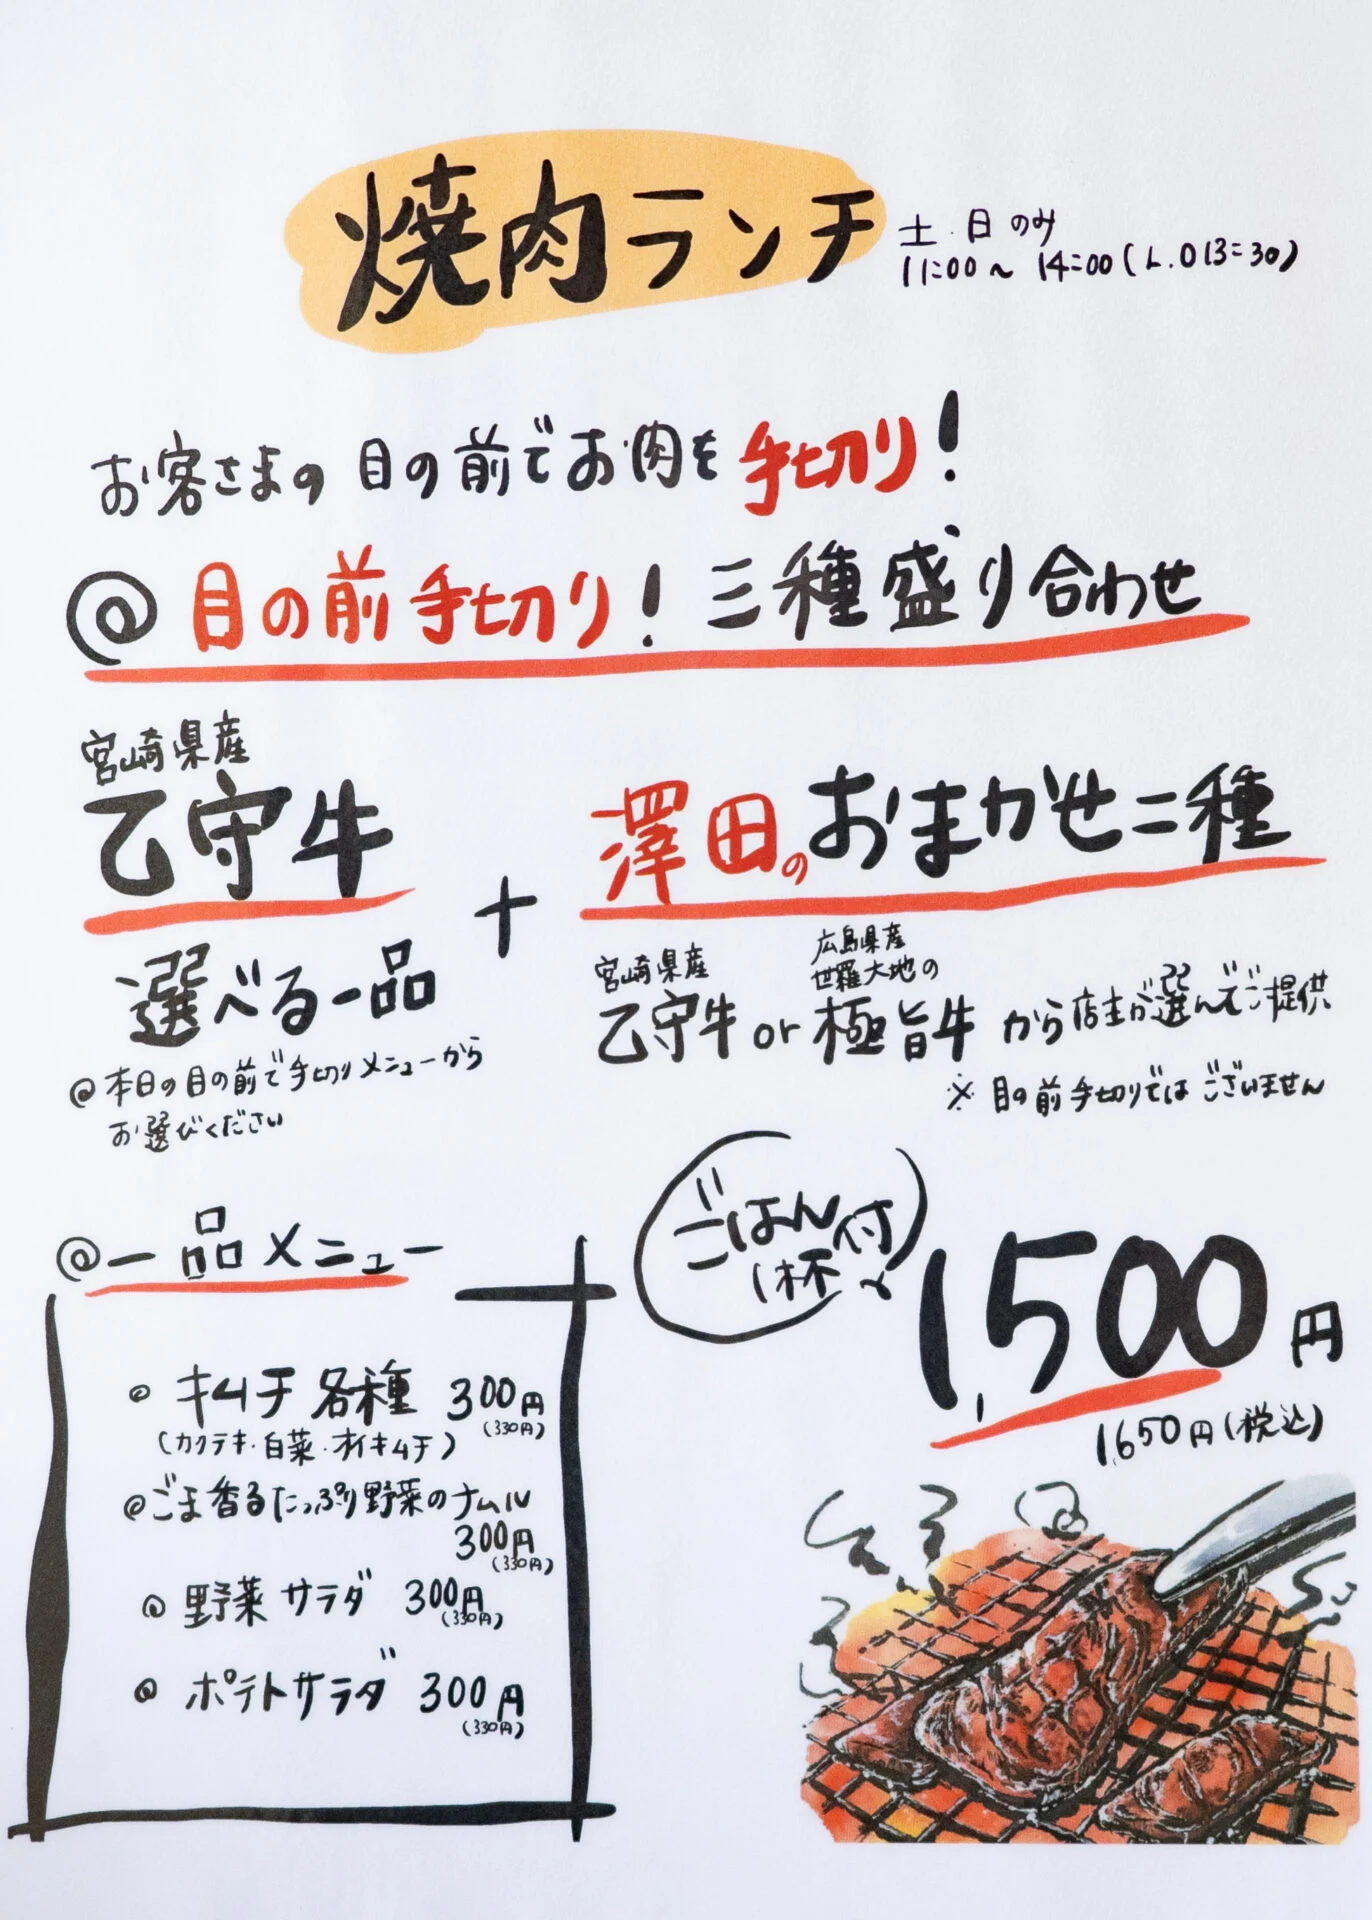 焼肉ランチ
土.日のみ
11:00~14:00(L.O13:30)
お客さまの目の前でお肉を手切り!
@目の前手切り!三種盛り合わせ
宮崎県産
乙守牛
選べる一品
@本日の目の前で手切りメニューから
お選びください
+
澤田のおまかせ二種
宮崎県産
乙守牛 or
広島県産
世羅大地の
極旨牛
から店主が選んでご提供
※目の前手切りではございません
ごはん
1杯付
1,500円
1,650円(税込)
@一品メニュー
キムチ各種 300円
(330円)
(カクテキ・白菜・オイキムチ)
@ごま香るたっぷり野菜のナムル
300円
(330円)
@野菜サラダ 300円
(330円)
@ポテトサラダ 300円
(330円)